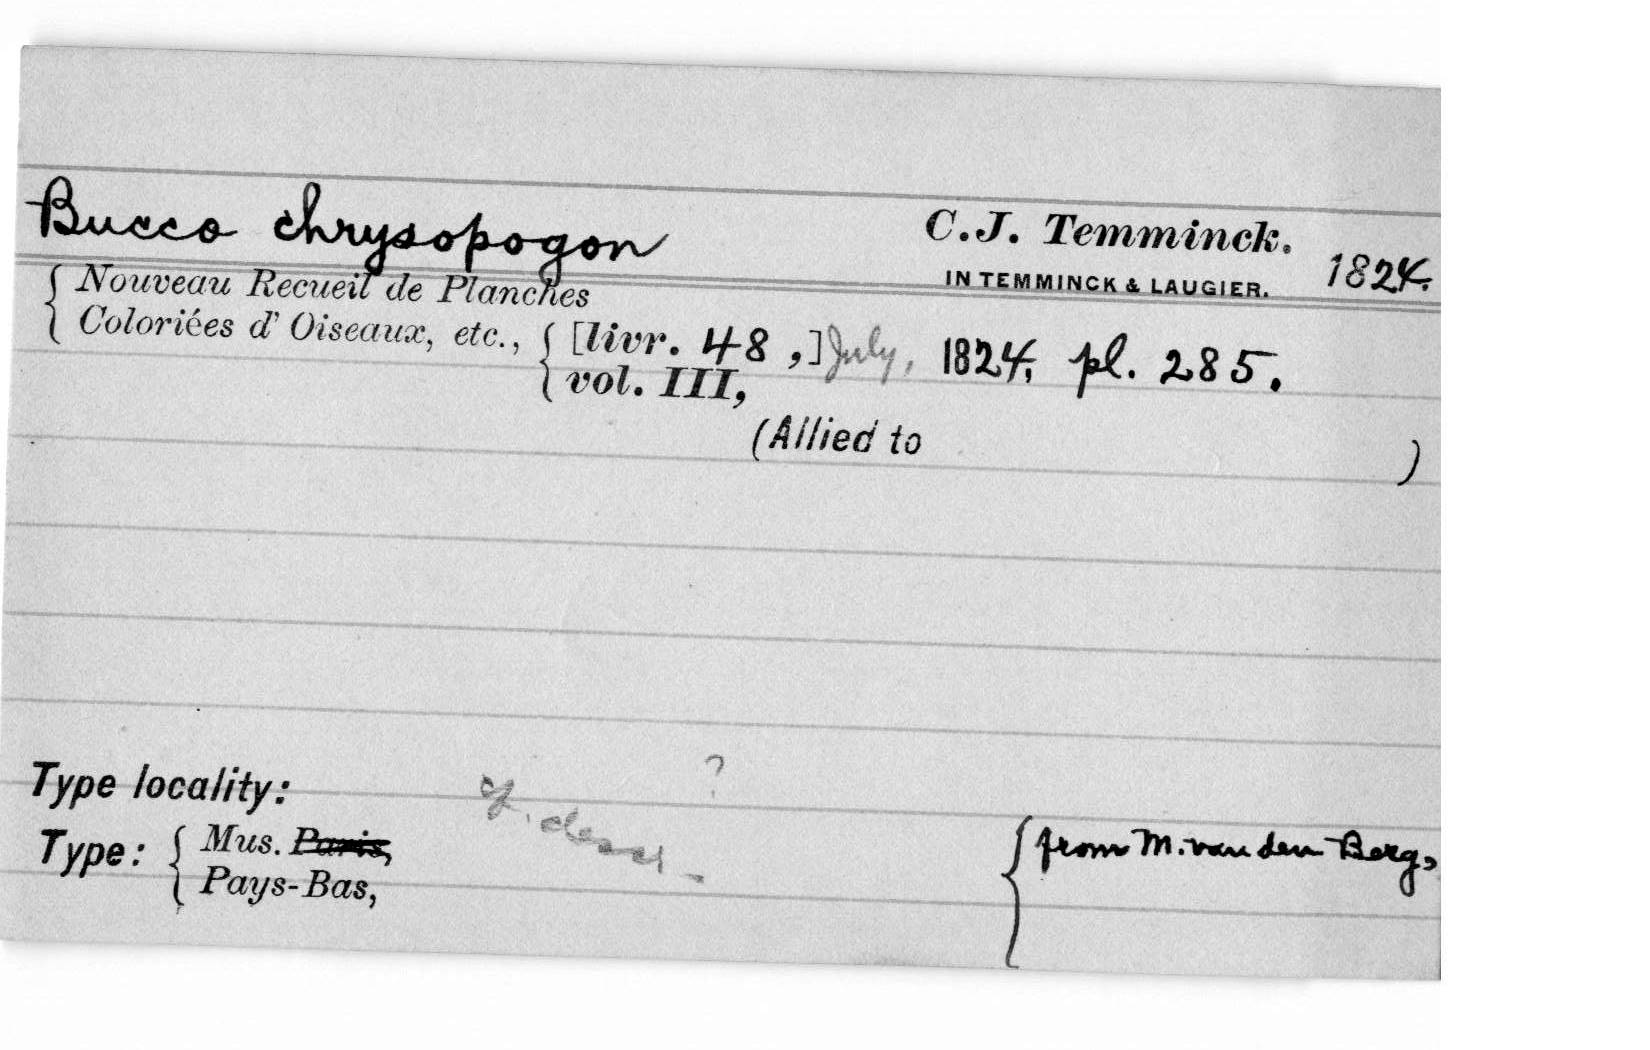 Bucco chrysopogon C.J. Temminck.
IN TEMMINCK & LAUGIER. 1824.
{ Nouveau Recueil de Planches
Coloriées d' Oiseaux, etc., { [livr. 48 ,] July, 1824, pl. 285.
vol. III,
(Allied to )
Type locality: ?
cf. descr.
Type: { Mus. Paris, { from M. van den Berg,
Pays-Bas,